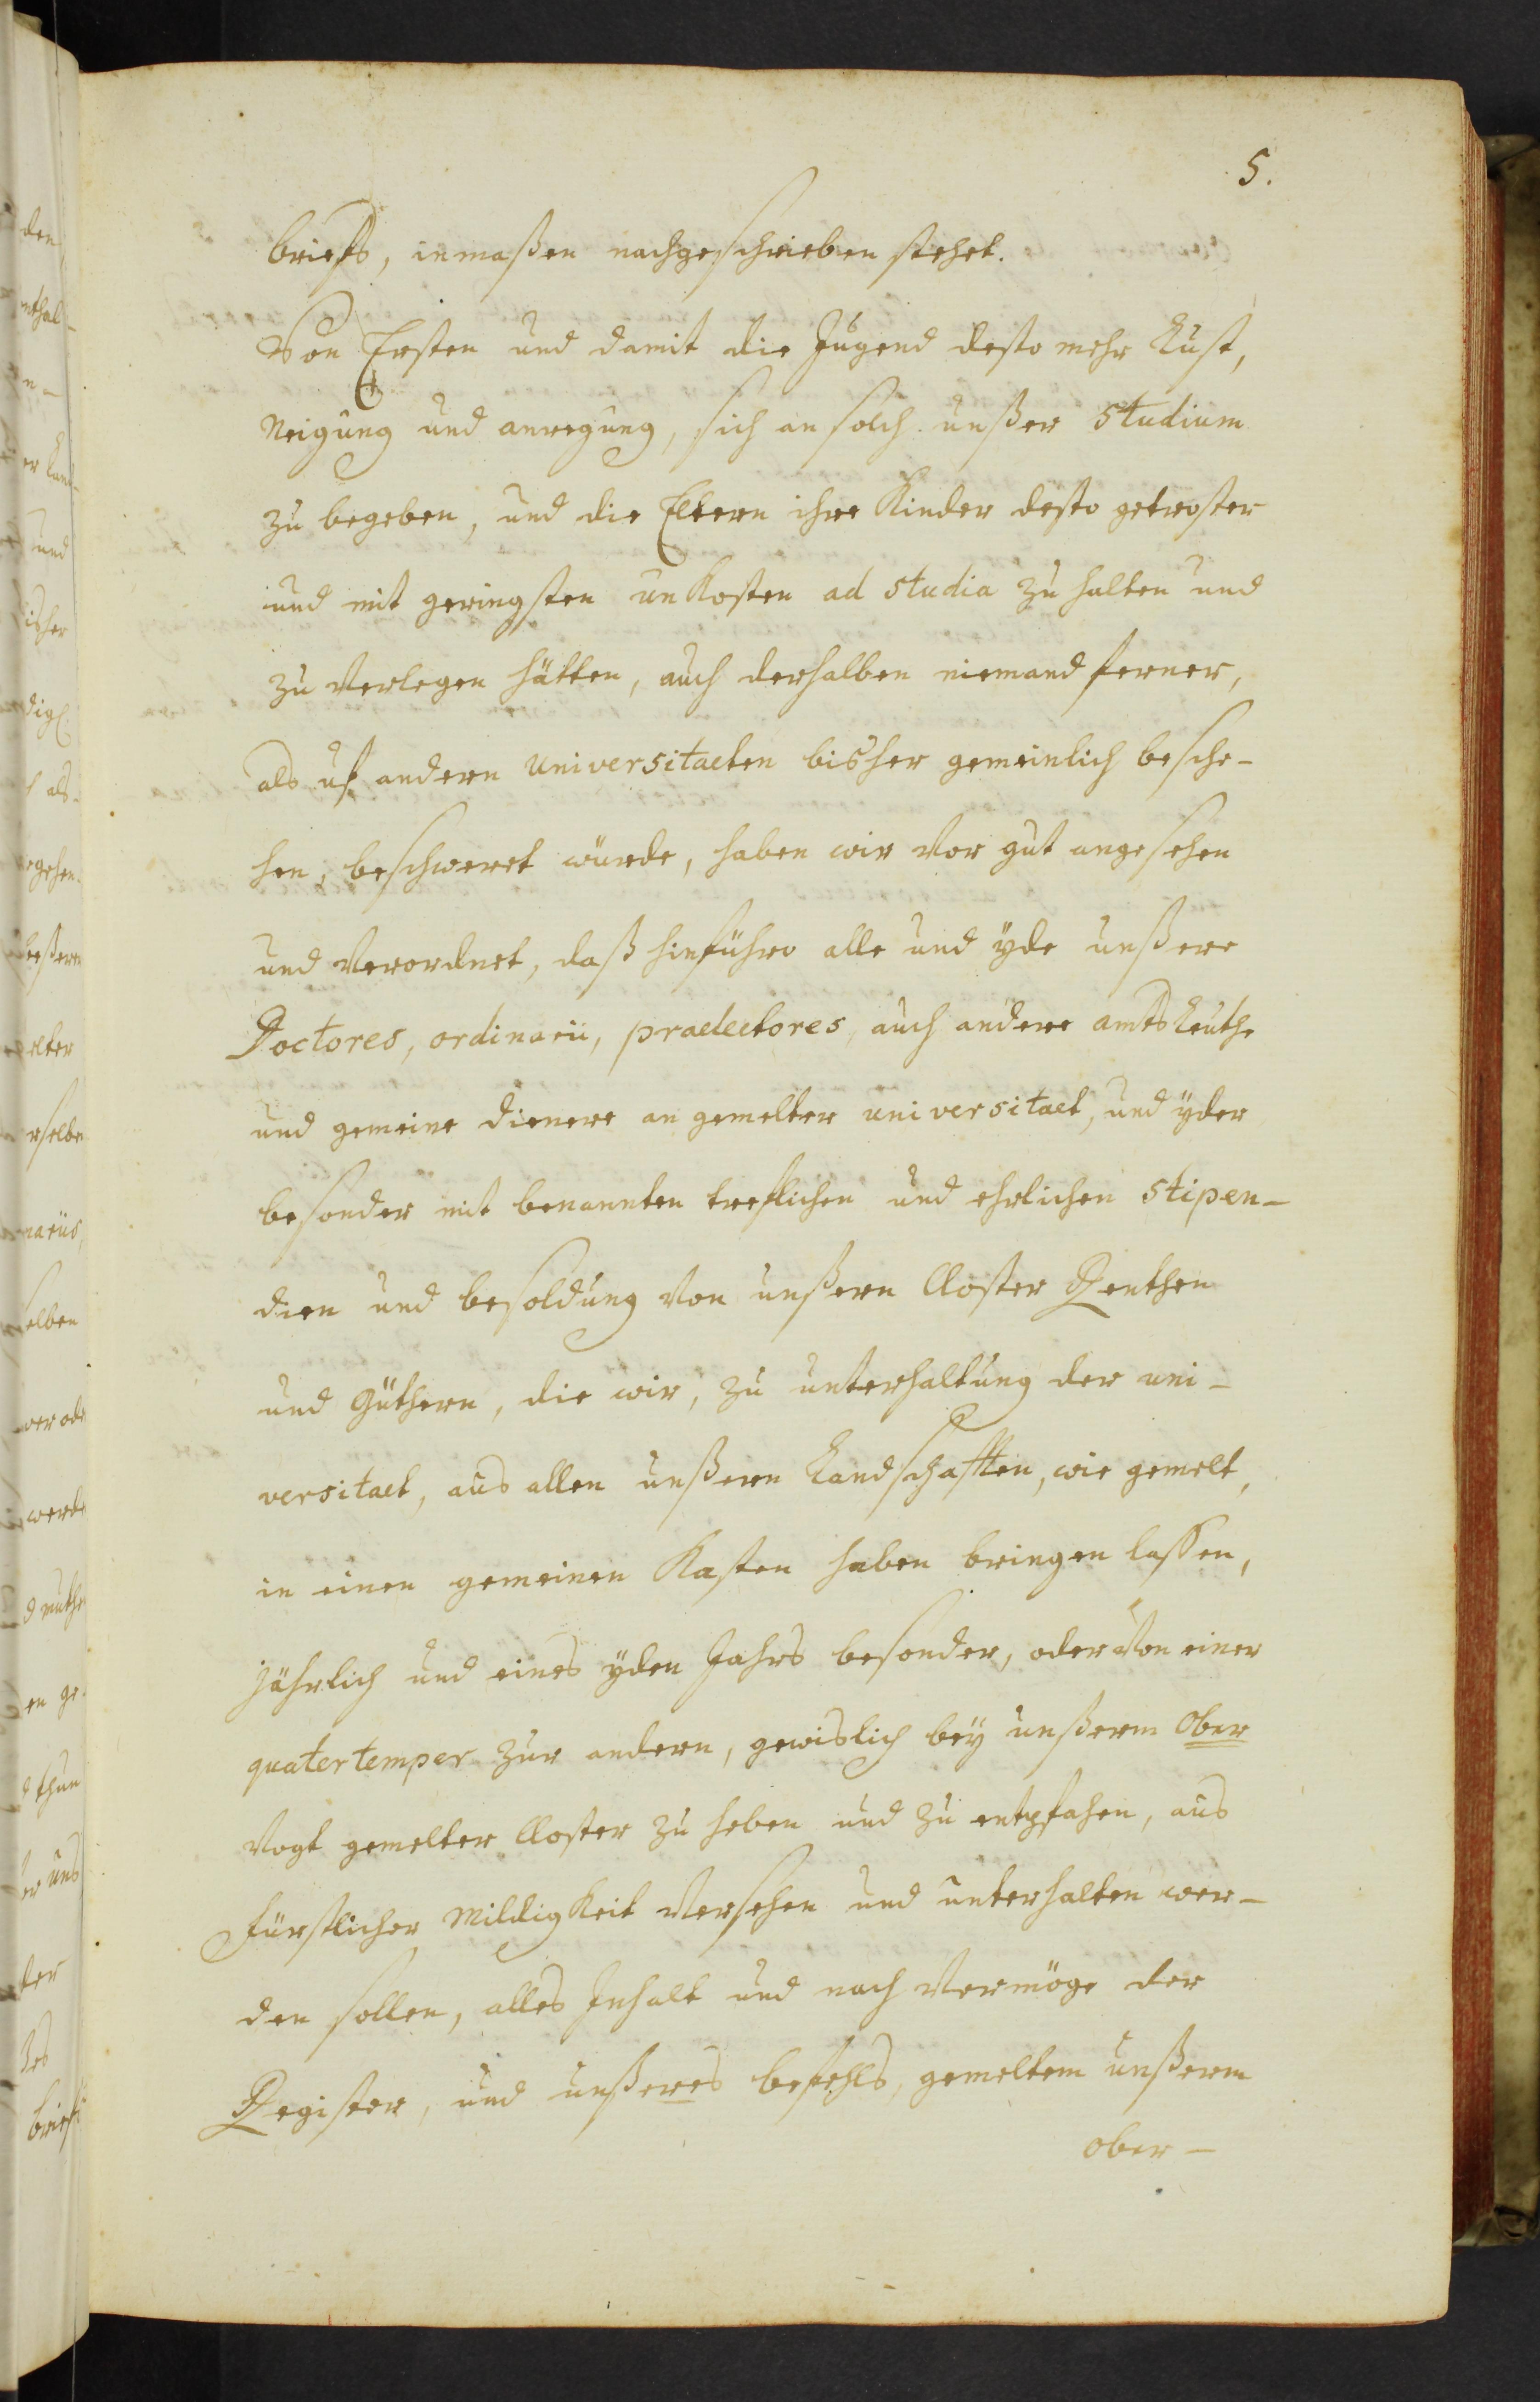 5.
briefs, inmaßen nachgeschrieben stehet.
Von Ersten und damit die Jugend desto mehr Lust,
Neigung und anregung, sich an solch unßer Studium
zu begeben, und die Eltern ihre Kinder desto getroster
und mit geringsten unkosten ad studia zu halten und
zu verlegen hätten, auch derhalben niemand ferner,
als uf andern Universitaeten bisher gemeinlich besche-
hen, beschweret würde, haben wir vor gut angesehen
und verordnet, daß hinführo alle und yde unßere
Doctores, ordinarii, praelectores, auch andere amts Leuthe
und gemeine dienere an gemelter universitaet, und yder
besonder mit benannten treflichen und ehrlichen Stipen-
dien und besoldung von unßern Closter Renthen
und Güthern, die wir, zu unterhaltung der uni-
versitaet, aus allen unßern Landschafften, wie gemelt,
in einen gemeinen Kasten haben bringen lassen,
Jährlich und eines yden Jahrs besonder, oder von einer
quatertemper zur andern, gewislich bey unßerm Ober
Vogt gemelter Closter zu heben und zu entpfahen, aus
fürstlicher Mildigkeit versehen und unterhalten wer-
den sollen, alles Inhalt und nach Vermöge der
Register, und unßeres befehls, gemeltem unßerm
ober-